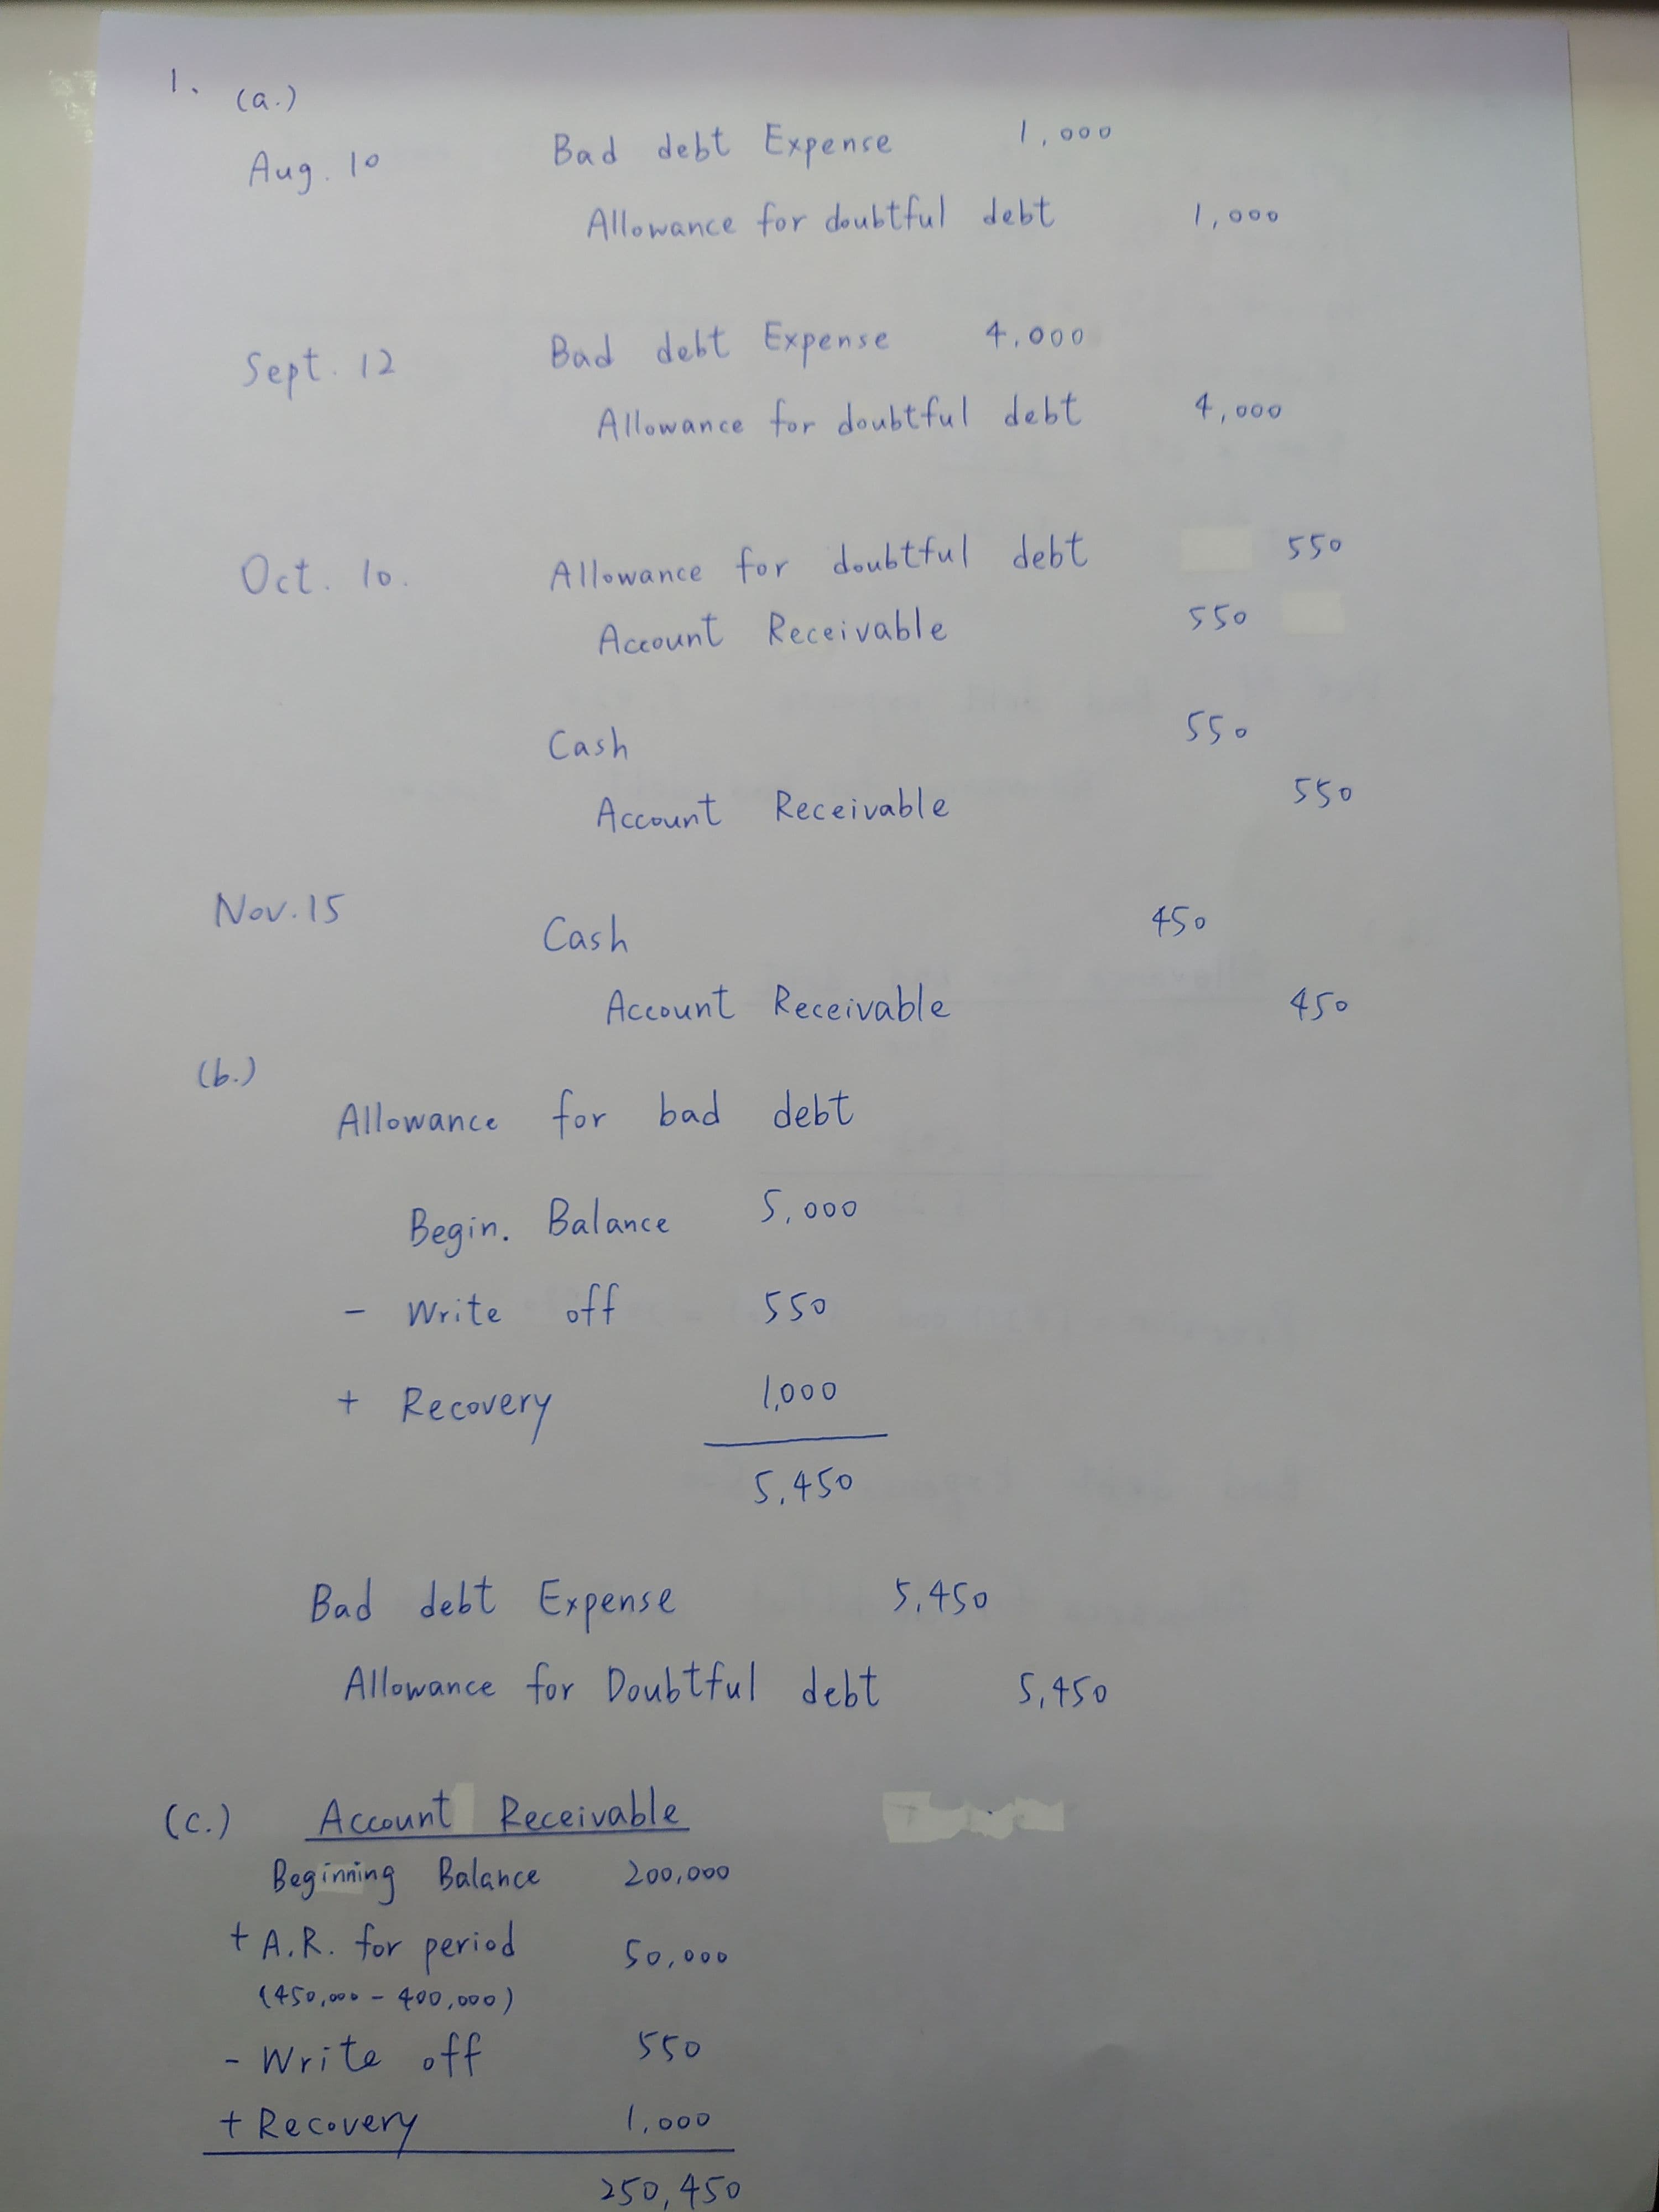 1. (a.)
Aug. 10 Bad debt Expense 1,000
Allowance for doubtful debt 1,000
Sept. 12 Bad debt Expense 4,000
Allowance for doubtful debt 4,000
Oct. 10. Allowance for doubtful debt 550
Account Receivable 550
Cash 550
Account Receivable 550
Nov. 15 Cash 450
Account Receivable 450
(b.)
Allowance for bad debt
Begin. Balance 5,000
- Write off 550
+ Recovery 1,000
5,450
Bad debt Expense 5,450
Allowance for Doubtful debt 5,450
(c.) Account Receivable
Beginning Balance 200,000
+ A.R. for period 50,000
(450,000 - 400,000)
- Write off 550
+ Recovery 1,000
250,450